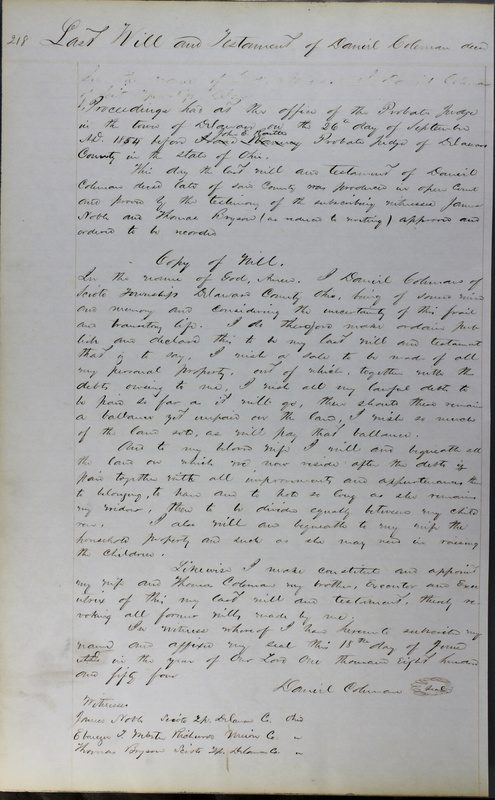 218 Last Will and Testament of Daniel Coleman decd
In the name of God, Amen. I Daniel Coleman
Proceedings had at the office of the Probate Judge
in the town of Delaware on the 26th day of September
AD. 1854 before John C. Probate Judge of Delaware
County in the State of Ohio.
This day the last will and testament of Daniel
Coleman decd late of said County was produced in open Court
and proved by the testimony of the subscribing witnesses James
Noble and Thomas Bryson (as reduced to writing) approved and
ordered to be recorded
Copy of Will.
In the name of God, Amen. I Daniel Coleman of
Scioto Township Delaware County Ohio, being of sound mind
and memory and considering the uncertainty of this frail
and transitory life. I do therefore make ordain pub
lish and declare this to be my last will and testament
that is to say, I wish a sale to be made of all
my personal property, out of which, together with the
debts owing to me, I wish all my lawful debts to
be paid so far as it will go, then should there remain
a ballance yet unpaid on the land, I wish so much
of the land sold, as will pay that ballance.
And to my beloved wife I will and bequeath all
the land on which we now reside after the debts is
paid together with all improvements and appurtenances there
to belonging, to have and to hold so long as she remains
my widow, then to be divided equally between my child
ren. I also will and bequeath to my wife the
household property and such as she may need in raising
the children.
Likewise I make constitute and appoint
my wife and Thomas Coleman my brother, Executor and Exec
utrix of this my last will and testament, thereby re
voking all former wills made by me.
In witness whereof I have hereunto subscribed my
name and affixed my seal this 15th day of June
in the year of Our Lord One thousand eight hundred
and fifty four
Daniel Coleman Seal
Witnesses
James Noble Scioto Tp. Delaware Co. Ohio
Ebenezer T. Richwood Union Co. "
Thomas Bryson Scioto Tp. Delaware Co. "